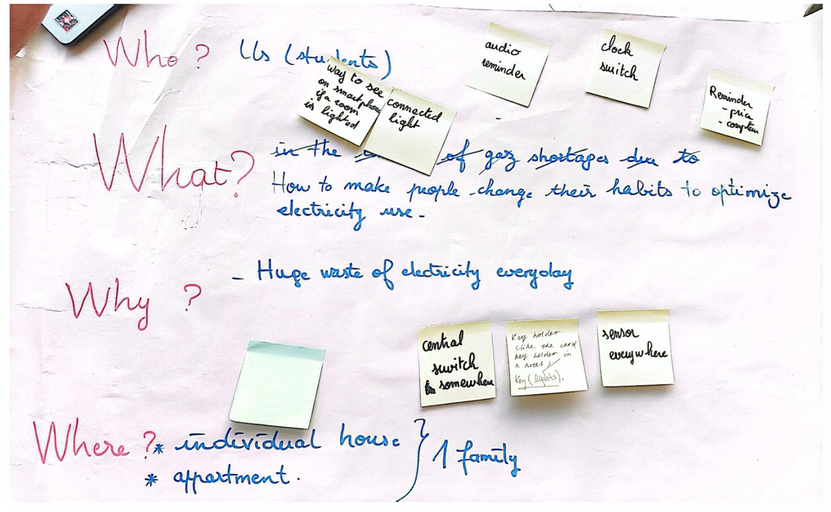 Who ? Us (students)
way to see
on smartphone
if a room
is lighted
connected
light
audio
reminder
clock
switch
Reminder
- price
-
What? in the of gaz shortages due to
How to make people change their habits to optimize
electricity use -
Why ? - Huge waste of electricity everyday
central
switch
somewhere
Key holder
(like the card
key holder in
a hotel)
Key (lights).
sensor
everywhere
Where ? * individual house
* appartment.
} 1 family